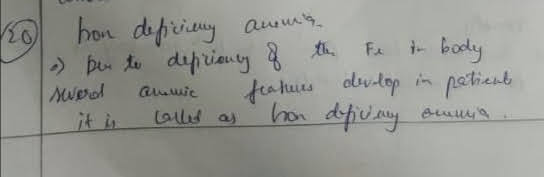 (20) Iron deficiency anemia.
→) Due to deficiency of the Fe in body
several anemic features develop in patients
it is called as Iron deficiency anemia.